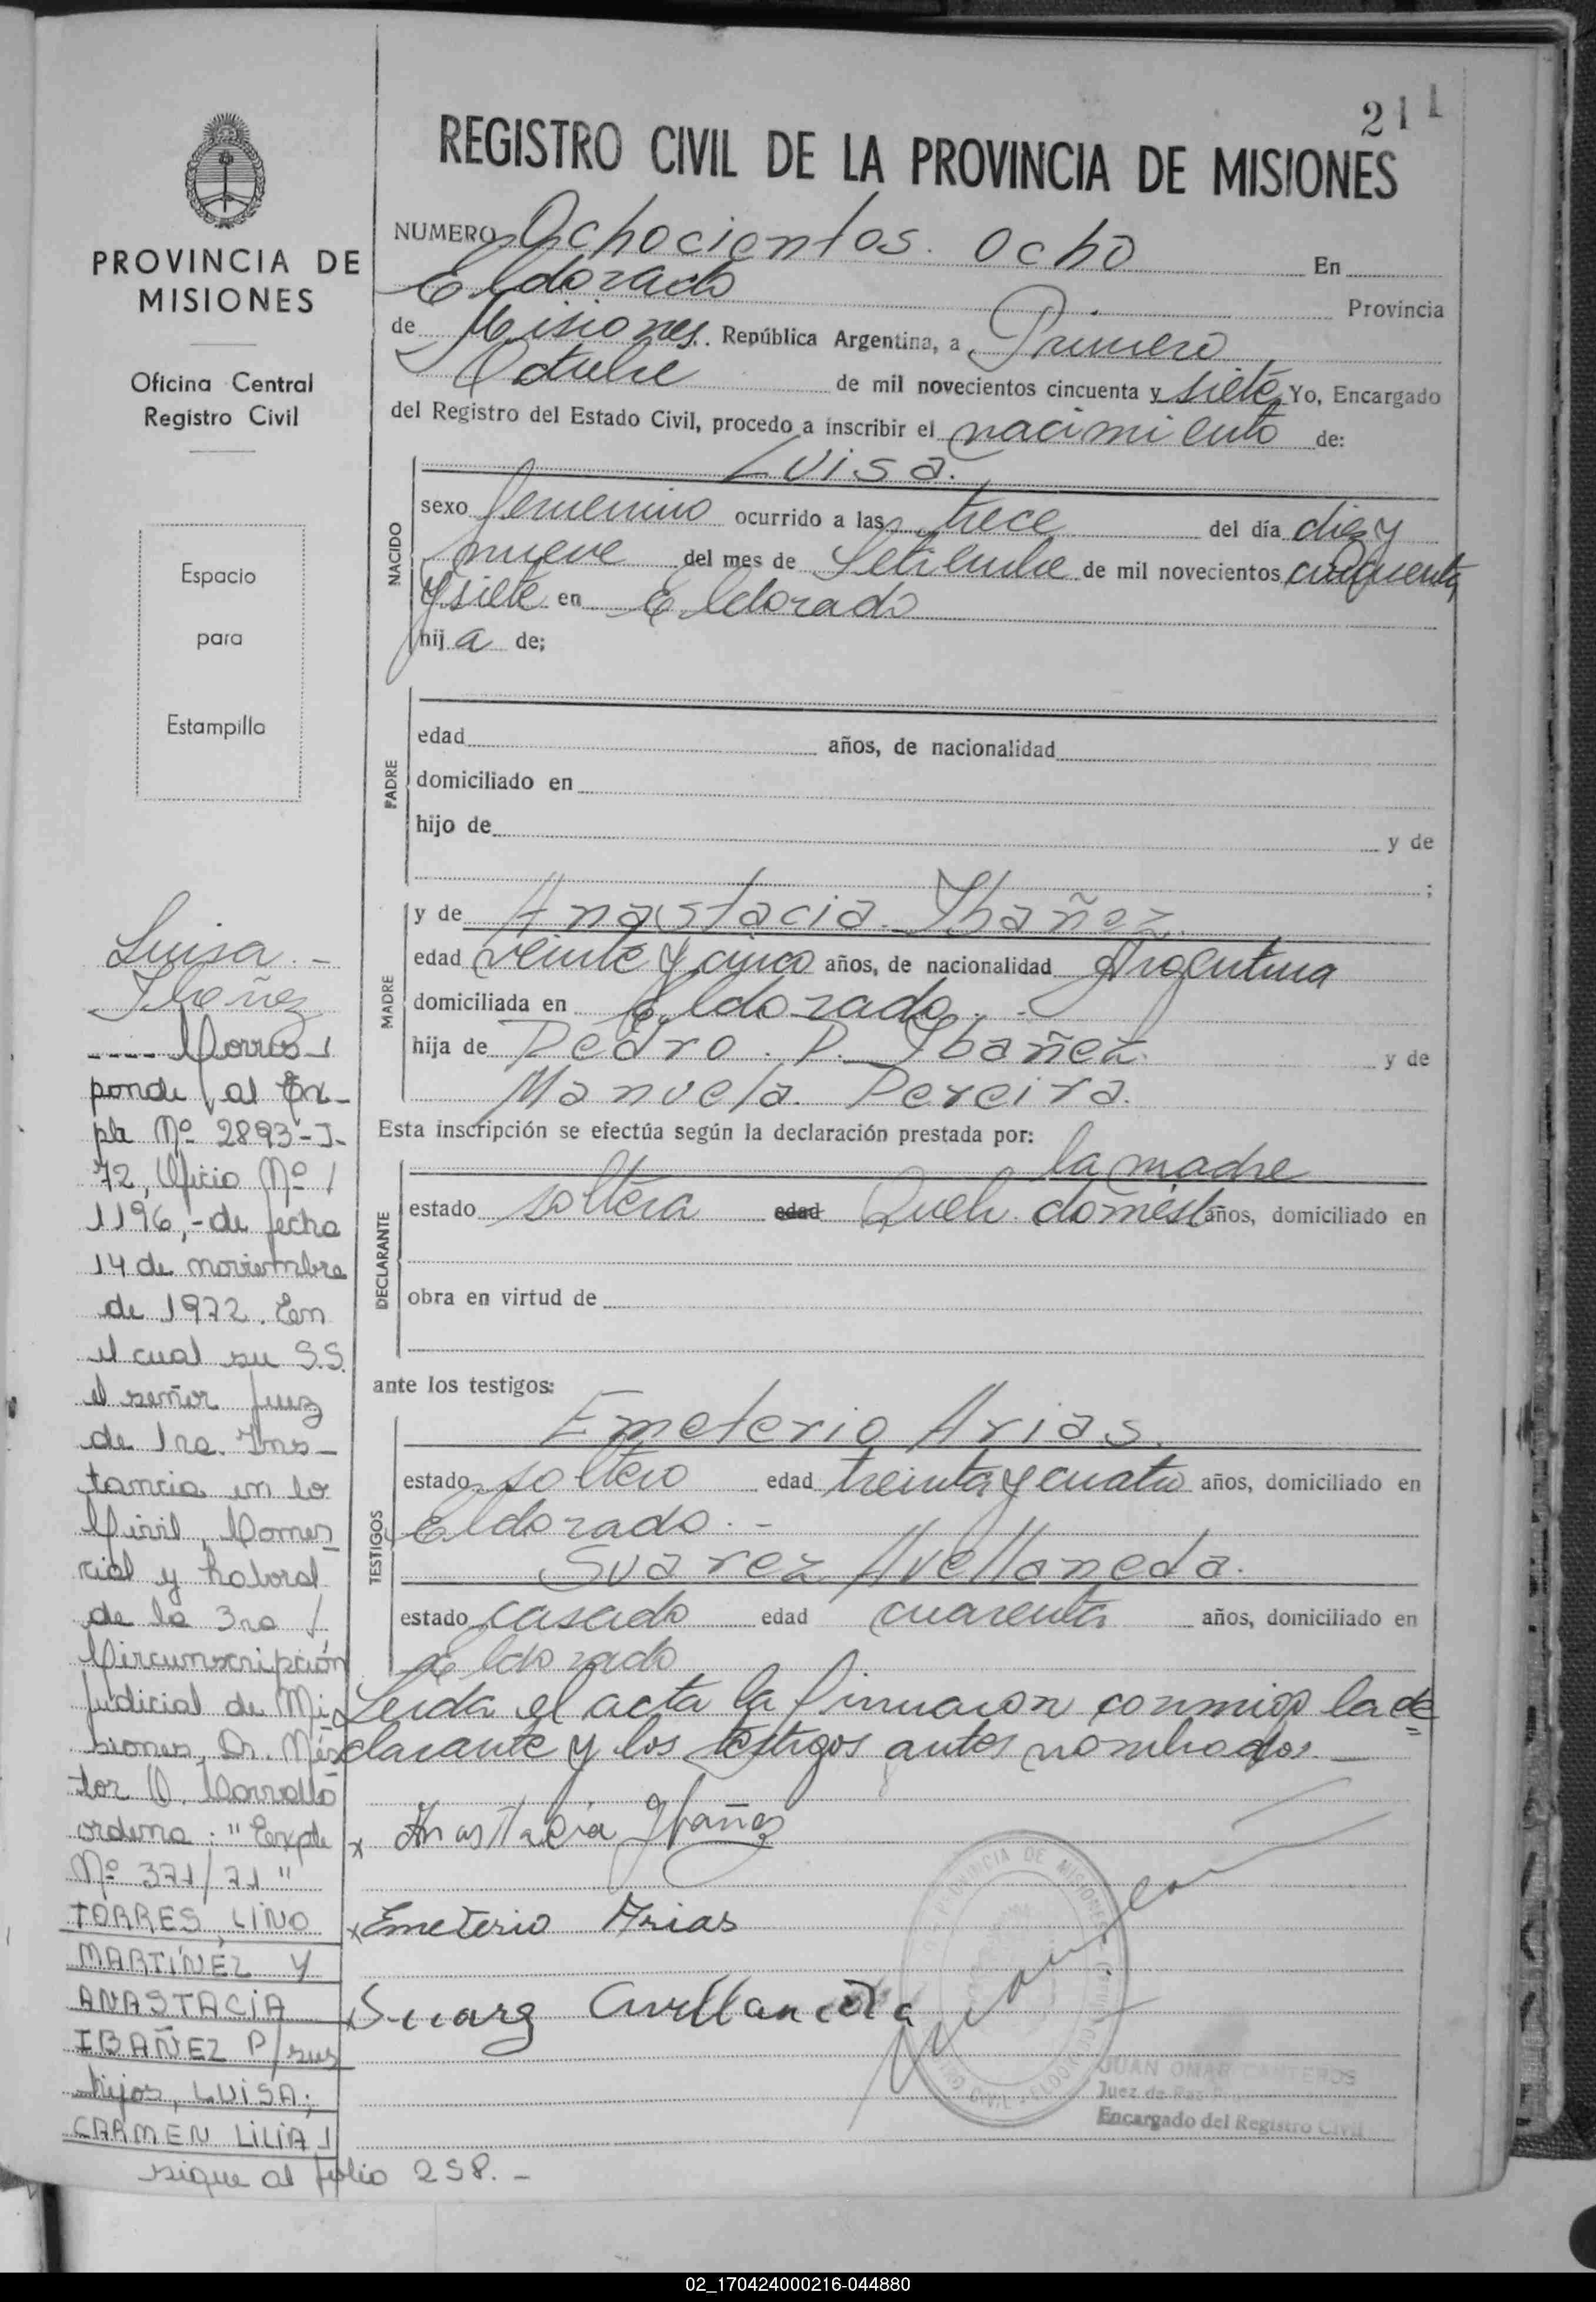 211
REGISTRO CIVIL DE LA PROVINCIA DE MISIONES
PROVINCIA DE
MISIONES
Oficina Central
Registro Civil
Espacio
para
Estampilla
NUMERO Ochocientos. ocho En
Eldorado Provincia
de Misiones. República Argentina, a Primero
Octubre de mil novecientos cincuenta y siete Yo, Encargado
del Registro del Estado Civil, procedo a inscribir el nacimiento de:
NACIDO
Luisa.
sexo femenino ocurrido a las trece del día diez y
nueve del mes de Setiembre de mil novecientos cincuenta
y siete en Eldorado
hij a de;
PADRE
edad años, de nacionalidad
domiciliado en
hijo de y de
;
MADRE
y de Anastacia Ibañez.
edad veinte y cinco años, de nacionalidad Argentina
domiciliada en Eldorado. -
hija de Pedro. P. Ibañez. y de
Manuela. Pereira.
Esta inscripción se efectúa según la declaración prestada por:
DECLARANTE
la madre
estado soltera edad Queh. domést años, domiciliado en
obra en virtud de
ante los testigos:
TESTIGOS
Emeterio Arias.
estado soltero edad treinta y cuatro años, domiciliado en
Eldorado. -
Suarez Avellaneda.
estado casado edad cuarenta años, domiciliado en
Eldorado
Leida el acta la firmaron conmigo la de
clarante y los testigos antes nombrados. -
x Anastacia Ibañez
x Emeterio Arias
x Suarez Avellaneda
PROVINCIA DE MISIONES
JUAN OMAR CANTEROS
Juez de Paz
Encargado del Registro Civil
Luisa. -
Ibañez
---- Corres /
ponde al Ex-
pte Nº 2893-I-
72, Oficio Nº /
1196,- de fecha
14 de noviembre
de 1972. En
el cual su S.S.
el señor Juez
de 1ra. Ins-
tancia en lo
Civil, Comer-
cial y Laboral
de la 3ra /
Circunscripción
Judicial de Mi-
siones, Dr. Nés-
tor O.
ordena: "Expte
Nº 371/71"
TORRES, LINO
MARTÍNEZ Y
ANASTACIA
IBAÑEZ P/sus
hijos, LUISA;
CARMEN LILIA /
sigue al folio 258. -
02_170424000216-044880